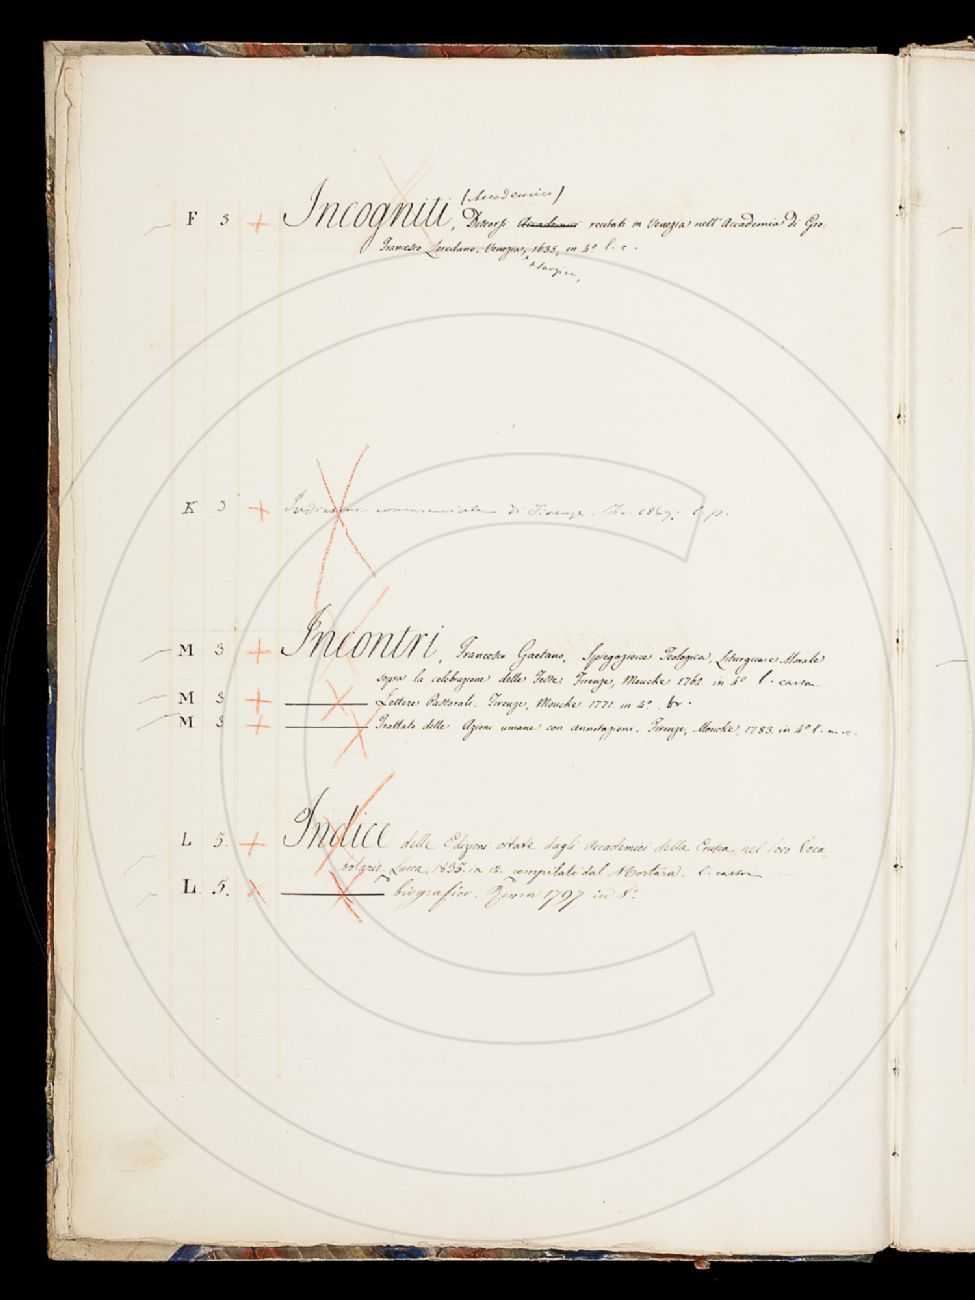 (Accademici)
F 3 + Incogniti, Discorsi Accademici recitati in Venezia nell'Accademia di Gio:
Francesco Loredano. Venezia, 1635, in 4° l. c.
Sarzina,
K 3 + Indicatore commerciale di Firenze. Fir. 1857.
M 3 + Incontri, Francesco Gaetano, Spiegazione Teologica, Liturgica e Morale
sopra la celebrazione delle Feste. Firenze, Mouche 1762 in 4° l. carton
M 3 + Lettere Pastorali. Firenze, Mouche 1771. in 4°. br.
M 3 + Trattato delle Azioni umane con annotazioni. Firenze, Mouche, 1783. in 4° l. m. c.
L 5. + Indice delle Edizioni citate dagli Accademici della Crusca nel loro Voca
bolario, Lucca 1835. in 12. compilato dal Mortara. l. carton
L. 5. x biografico. Roma 1797 in 8°.